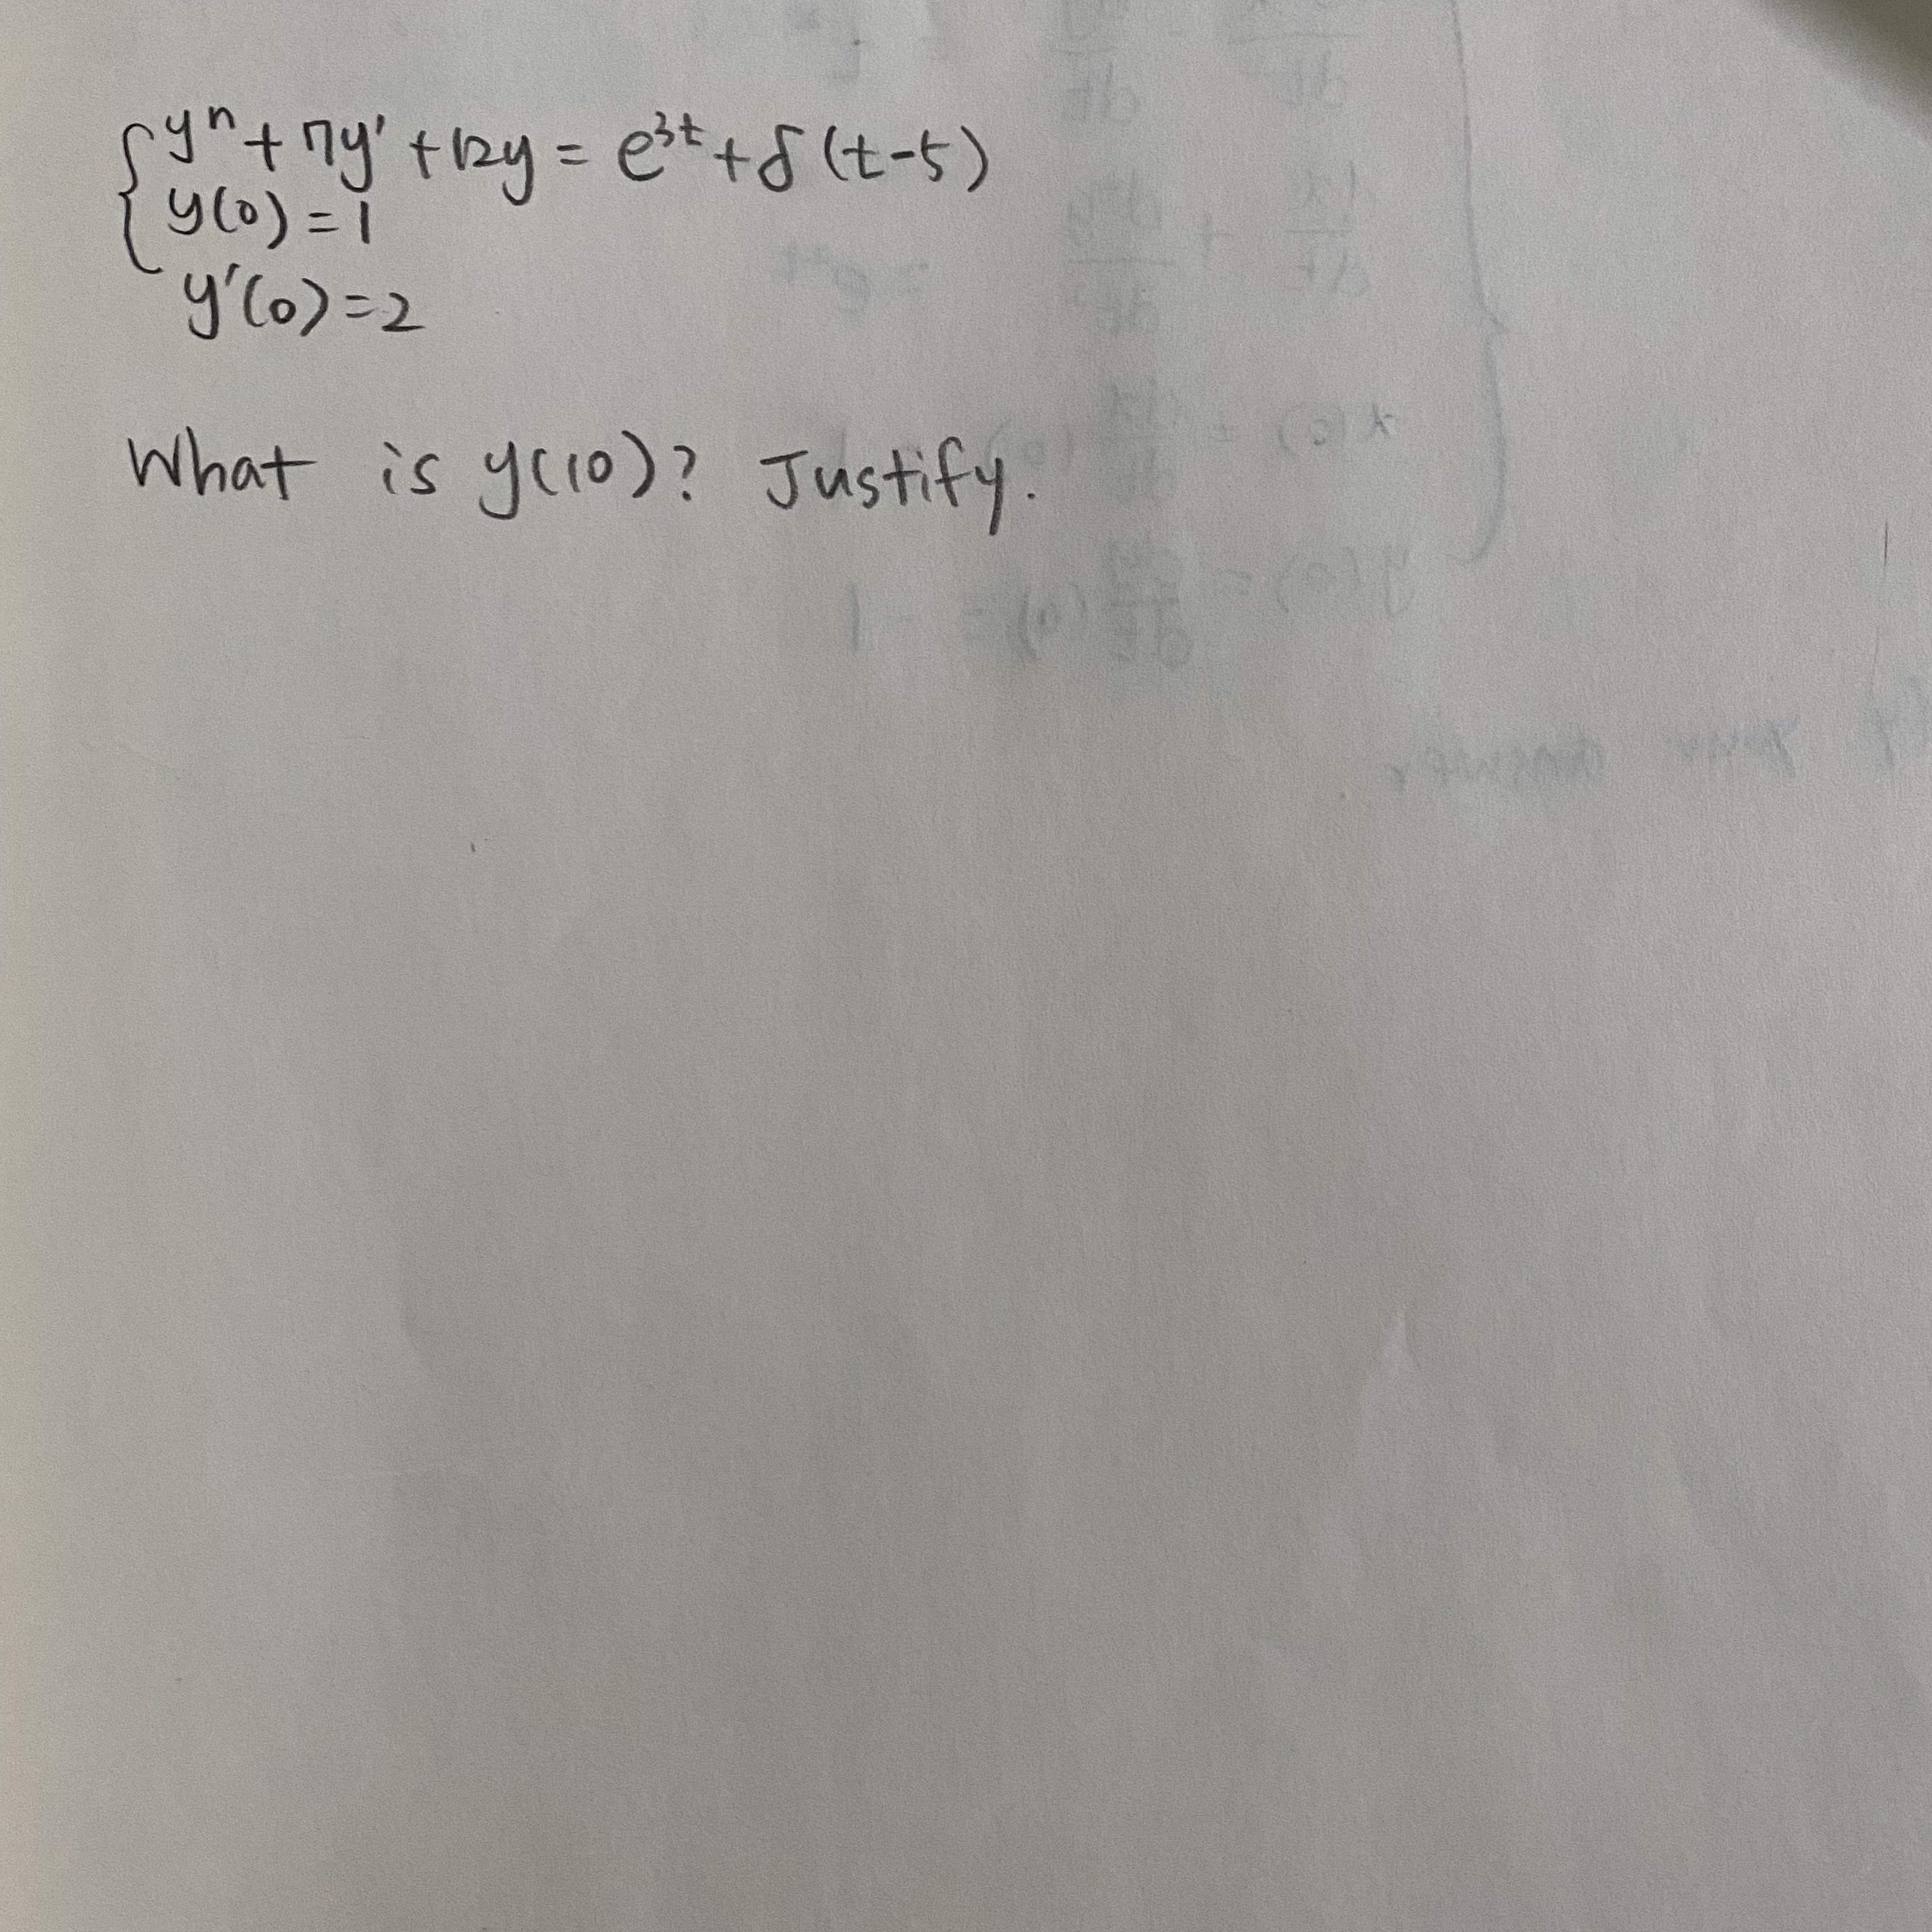 yⁿ + 7y' + 12y = e^{3t} + δ(t-5)
y(0) = 1
y'(0) = 2
What is y(10)? Justify.